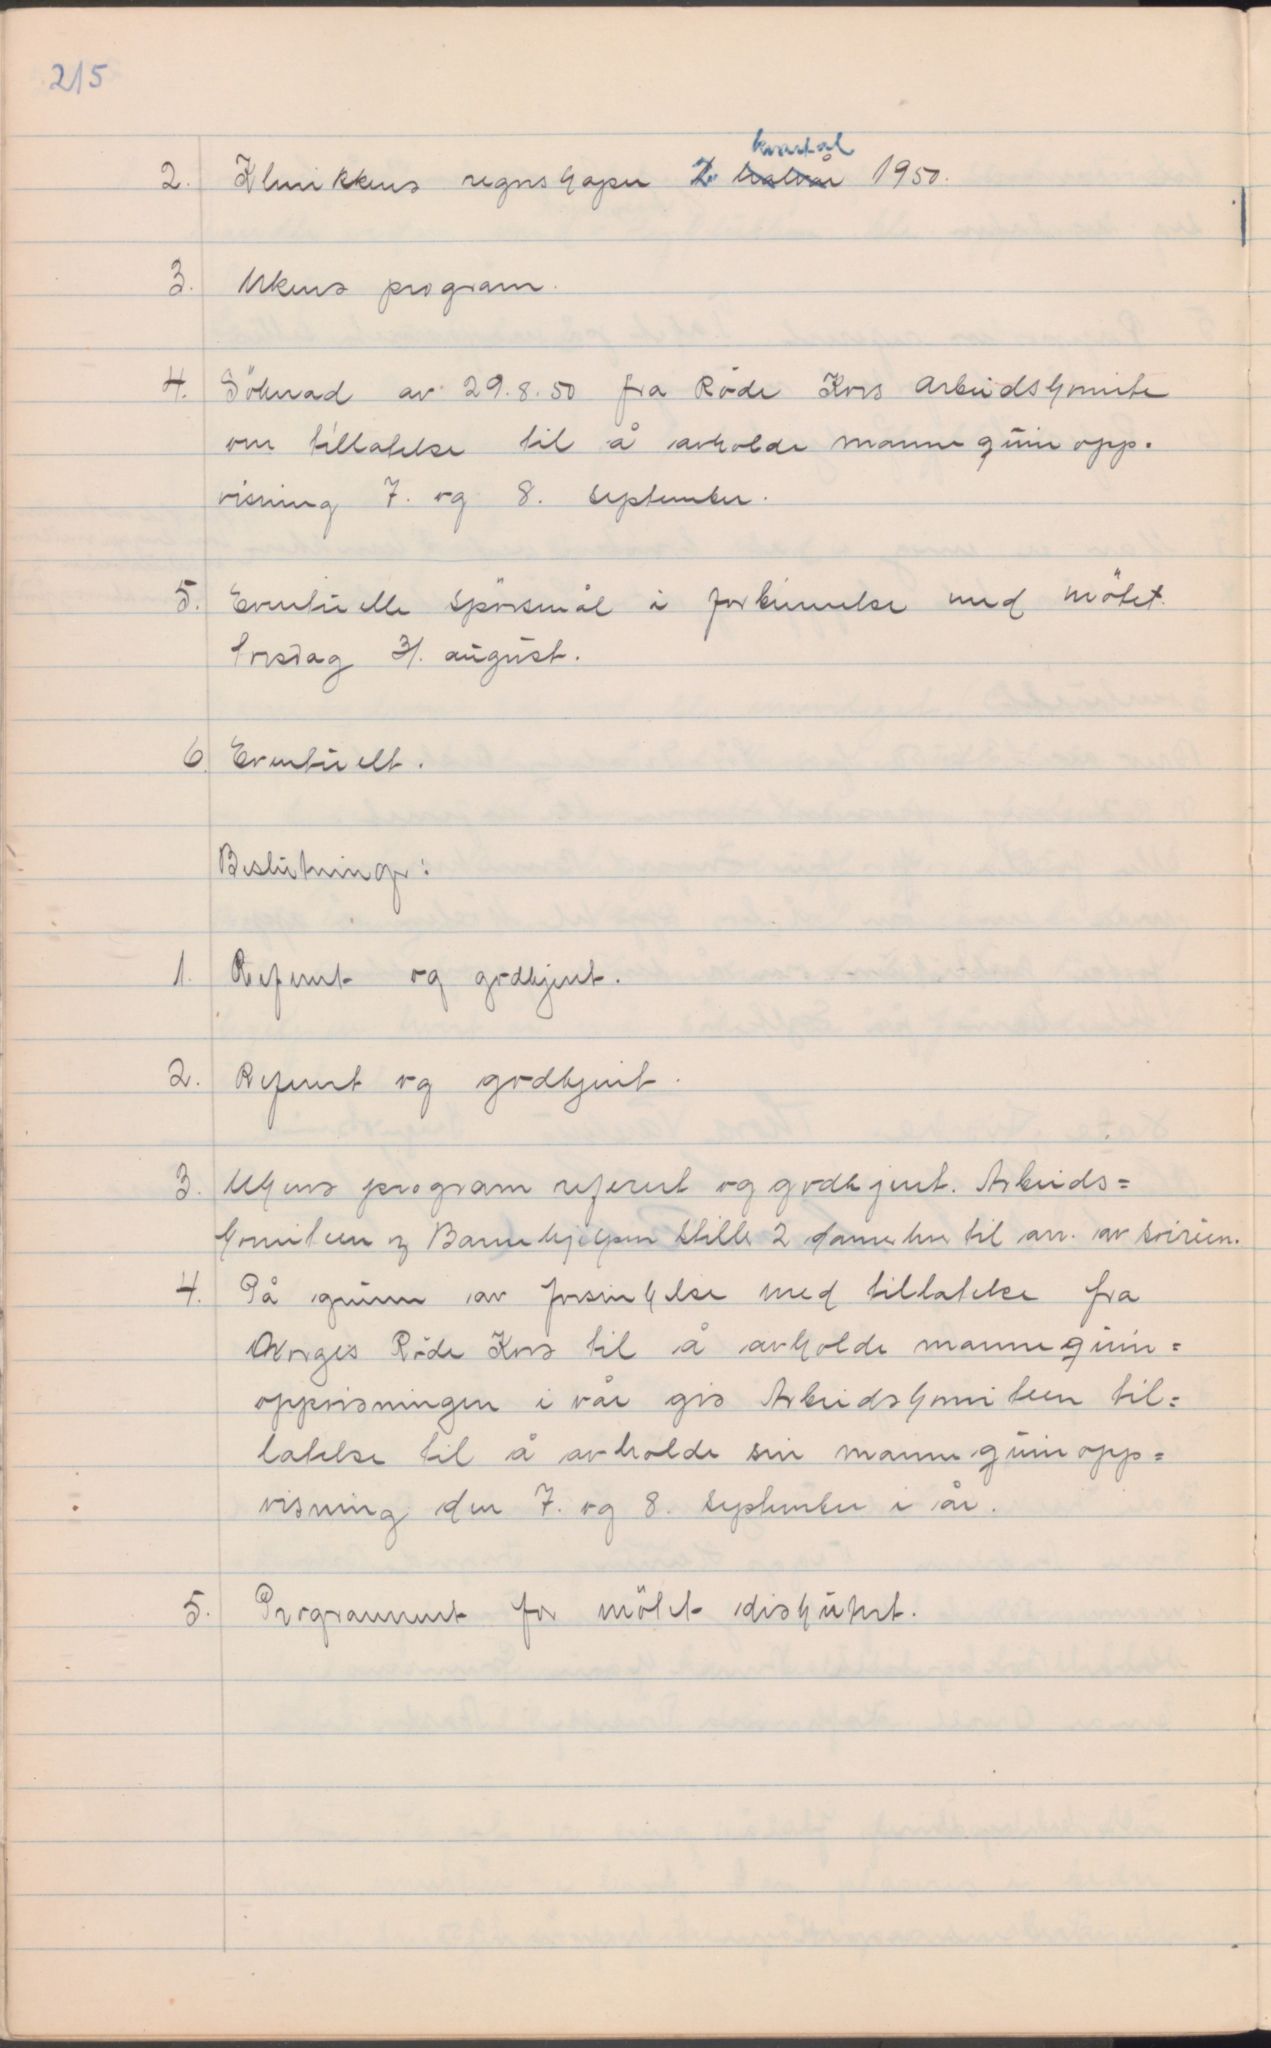 215
2. Klinikkens regnskaper 2. kvartal 1950.
3. Ukens program.
4. Söknad av 29.8.50 fra Röde Kors Arbeidskomite
om tillatelse til å avholde mannequin opp-
visning 7. og 8. september.
5. Eventuelle spörsmål i forbinnelse med mötet
torsdag 31. august.
6. Eventuelt.
Beslutninger:
1. Referert og godkjent.
2. Referert og godkjent.
3. Ukens program referert og godkjent. Arbeids=
komiteen og Barnehjelpen stiller 2 damer hver til arr. av soiréen.
4. På grunn av forsinkelse med tillatelse fra
Norges Röde Kors til å avholde mannequin=
oppvisningen i vår gis Arbeidskomiteen til=
latelse til å avholde sin mannequinopp=
visning den 7. og 8. september i år.
5. Programmet for mötet diskutert.